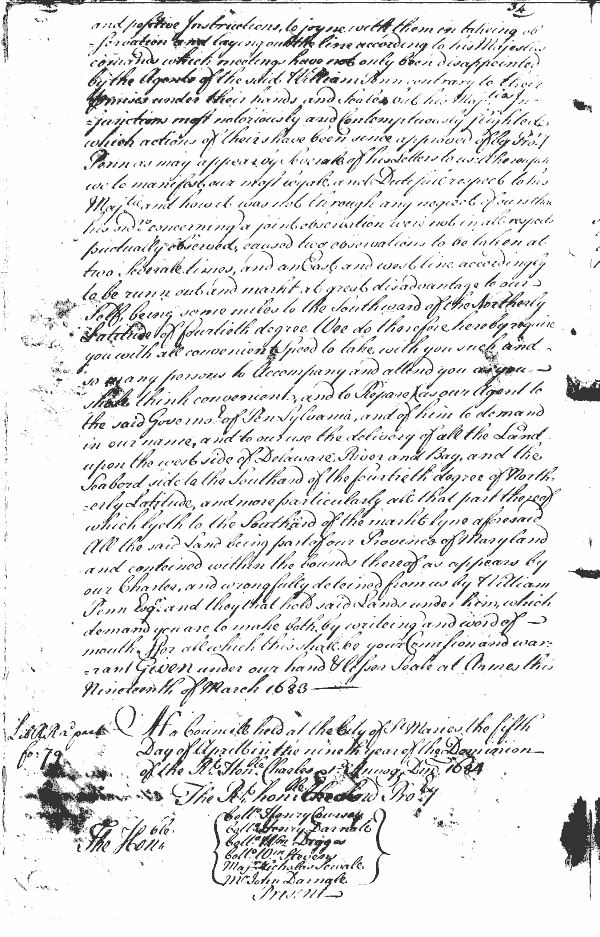 34
and positive Instructions, to joyne with them in takeing ob
-servation and laying out the line according to his Majesties
comands which meeting have not only been disappointed
by the Agents of the said William Penn contrary to their
promises under their hands and Seales, but his Maj:ties In-
-junctions most notoriously and Contemptuously slighted
which actions of theirs have been since approved of by Pro:ry
Penn as may appear by severall of his Letters to us, though
we to manifest our most loyale and Dutifull respect to his
Maj:tie and how it was not through any neglect of ours that
his ord:rs concerning a joint observation were not in all respects
punctually observed, caused two observations to be taken at
two severale times, and an East and west line accordingly
to be runn out and markt at great disadvantage to our
Selfe being some miles to the Southward of the Northerly
Latitude of fourtieth degree Wee do therefore hereby require
you with all convenient Speed to take with you such and
so many persons to Accompany and attend you as you
shall think convenient, and to Repare (as our Agent to
the said Govern:r of Pensylvania, and of him to demand
in our name, and to our use the delivery of all the Land
upon the west side of Delaware River and Bay, and the
Seabord side to the Southard of the fourtieth degree of North-
-erly Latitude, and more particularly all that part thereof
which lyeth to the Southard of the markt lyne afforesaid
All the said Land being part of our Province of Maryland
and conteined within the bounds thereof as appears by
our Charter, and wrongfully deteined from us by William
Penn Esq:r and they that hold said Lands under him, which
demand you are to make both by writeing and word of
mouth ffor all which this shall be your Comission and war-
-rant Given under our hand & lesser Seale at Armes this
Nineteenth of March 1683
Lib. R.R. a part
fo: 79
At a Councile held at the City of St Maries the fifth
Day of Aprill in the nineth year of the Dominion
of the Rt Honble Charles &c Annoq Dm 1684
The Rt honble the Lord Pro:ry
The Honble
Coll:o Henry Coursey
Coll:o Henry Darnale
Coll:o Wm Digges
Coll:o Wm Stevens
Maj:r Nicholas Sewale
Mr John Darnale
Present